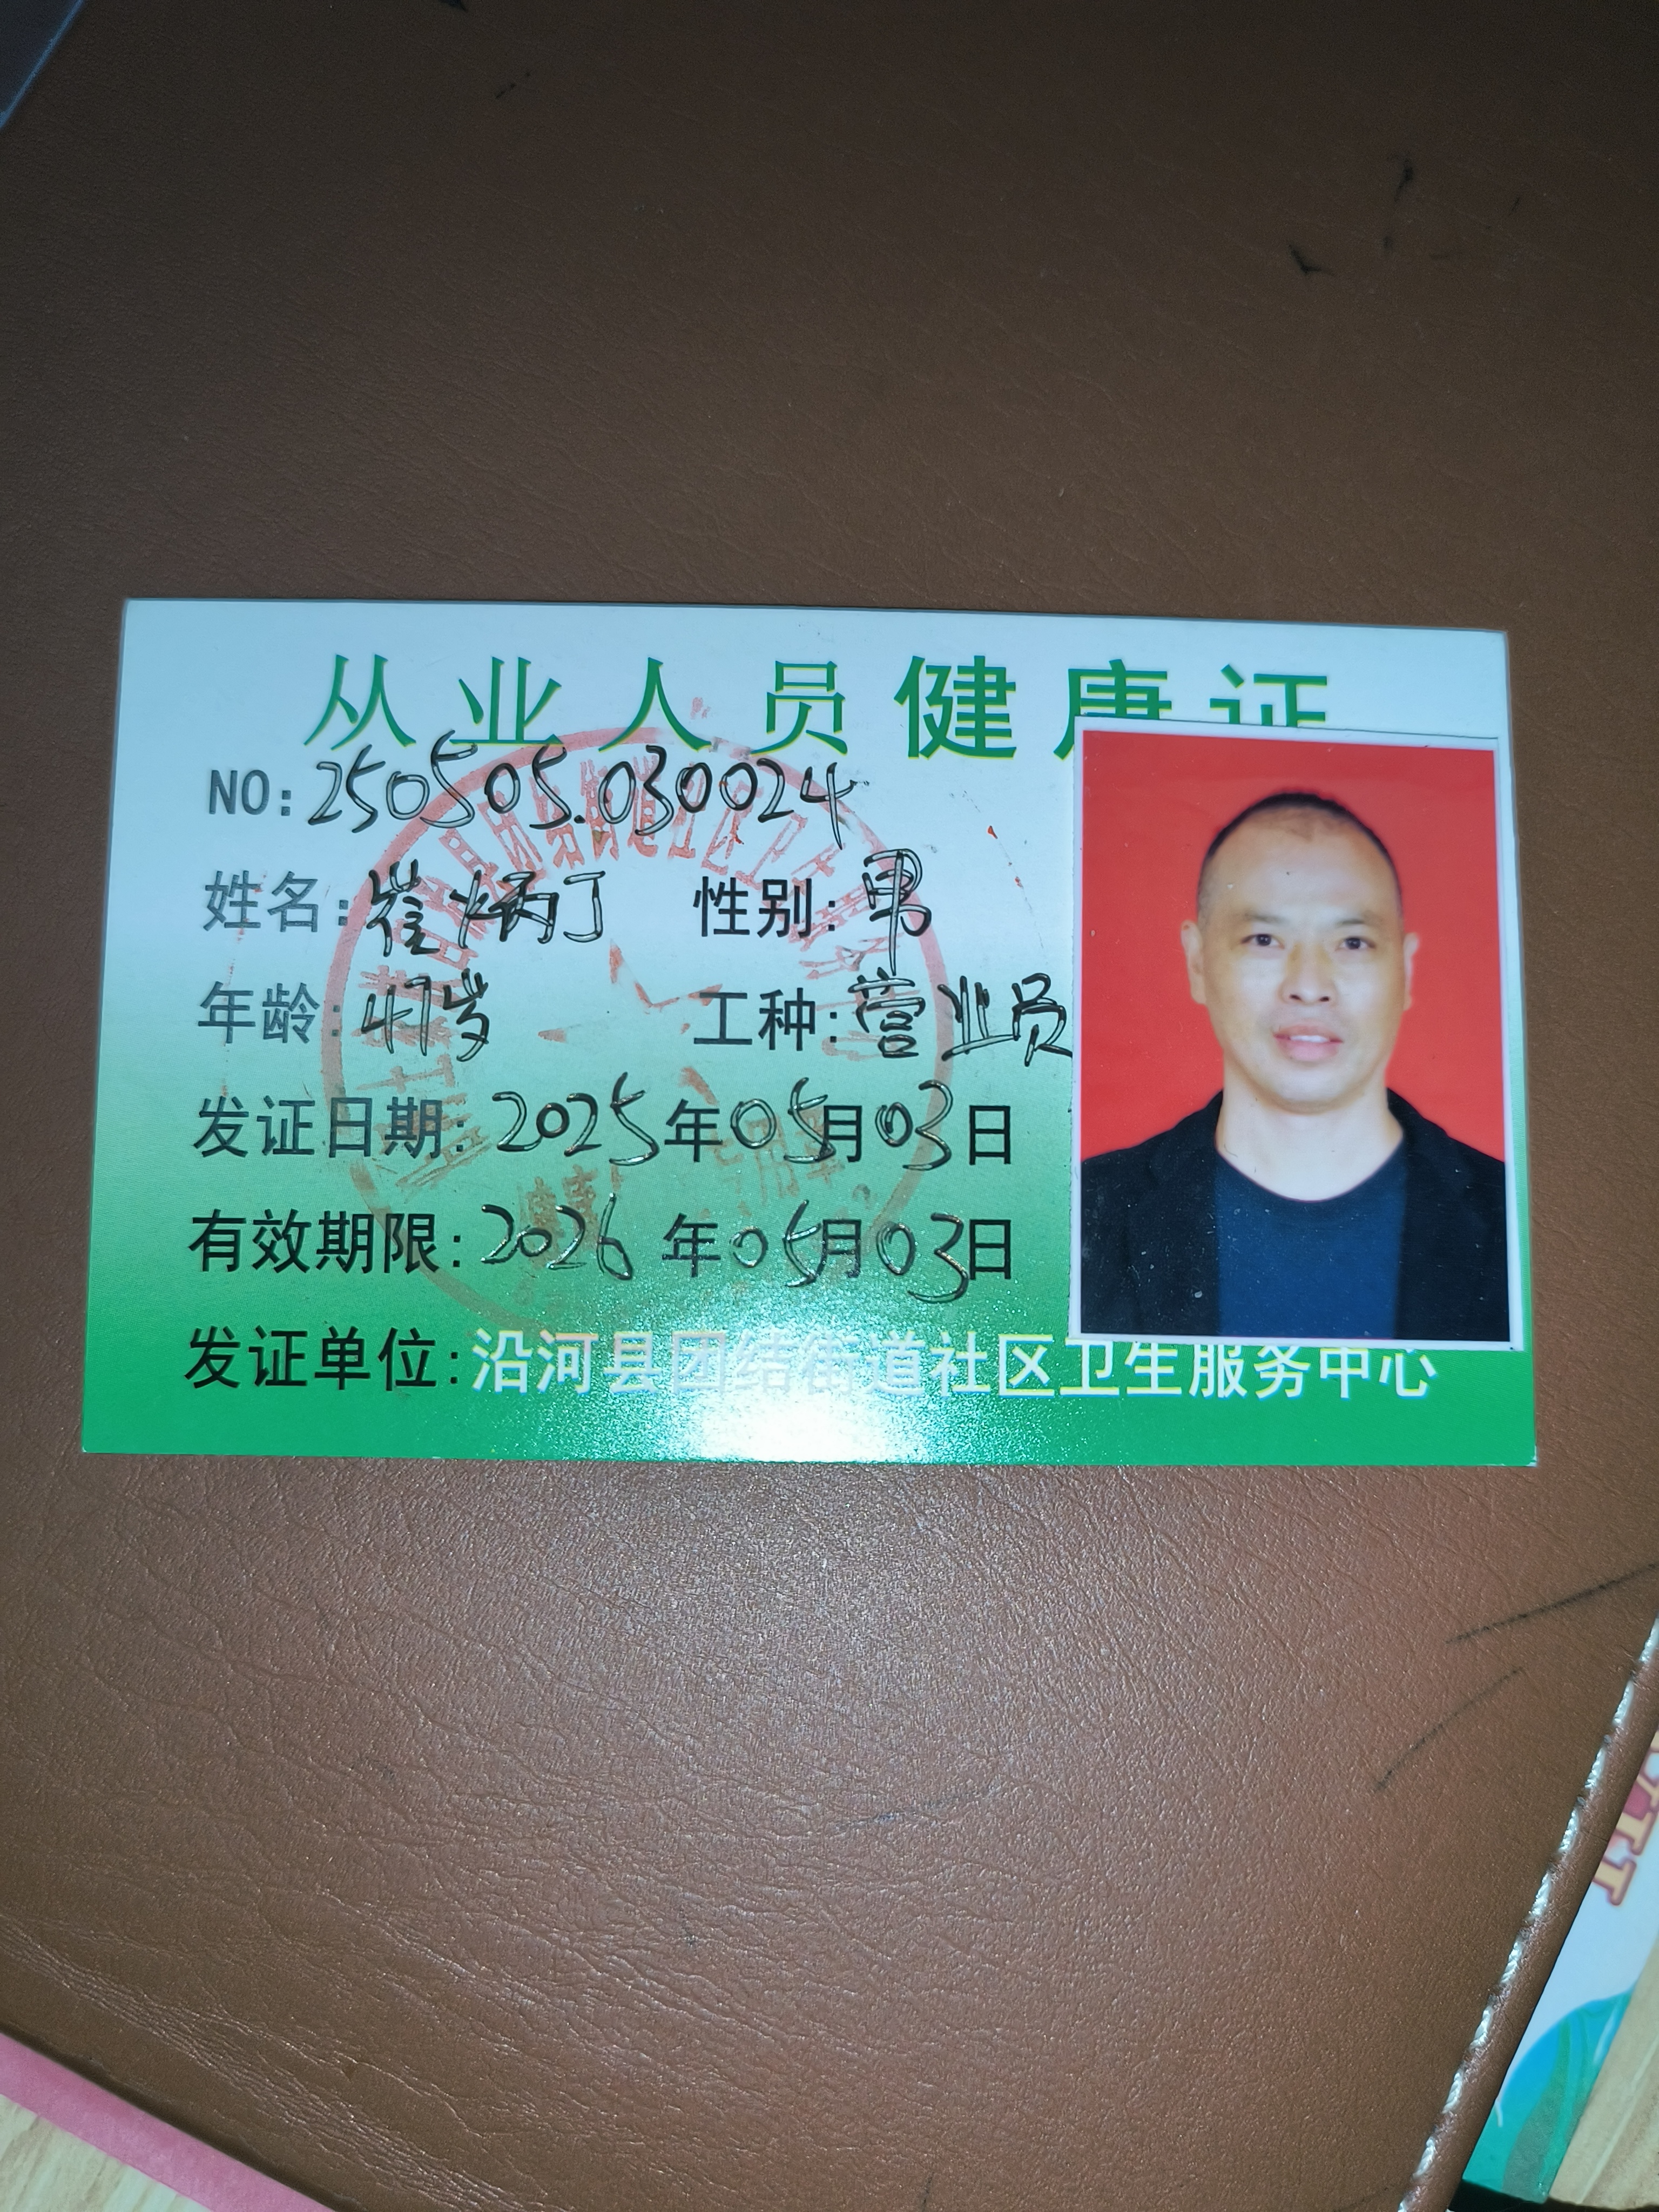 从业人员健康证
NO:250505.030024
姓名:崔炳丁 性别:男
年龄:47岁 工种:营业员
发证日期:2025年05月03日
有效期限:2026年05月03日
发证单位:沿河县团结街道社区卫生服务中心